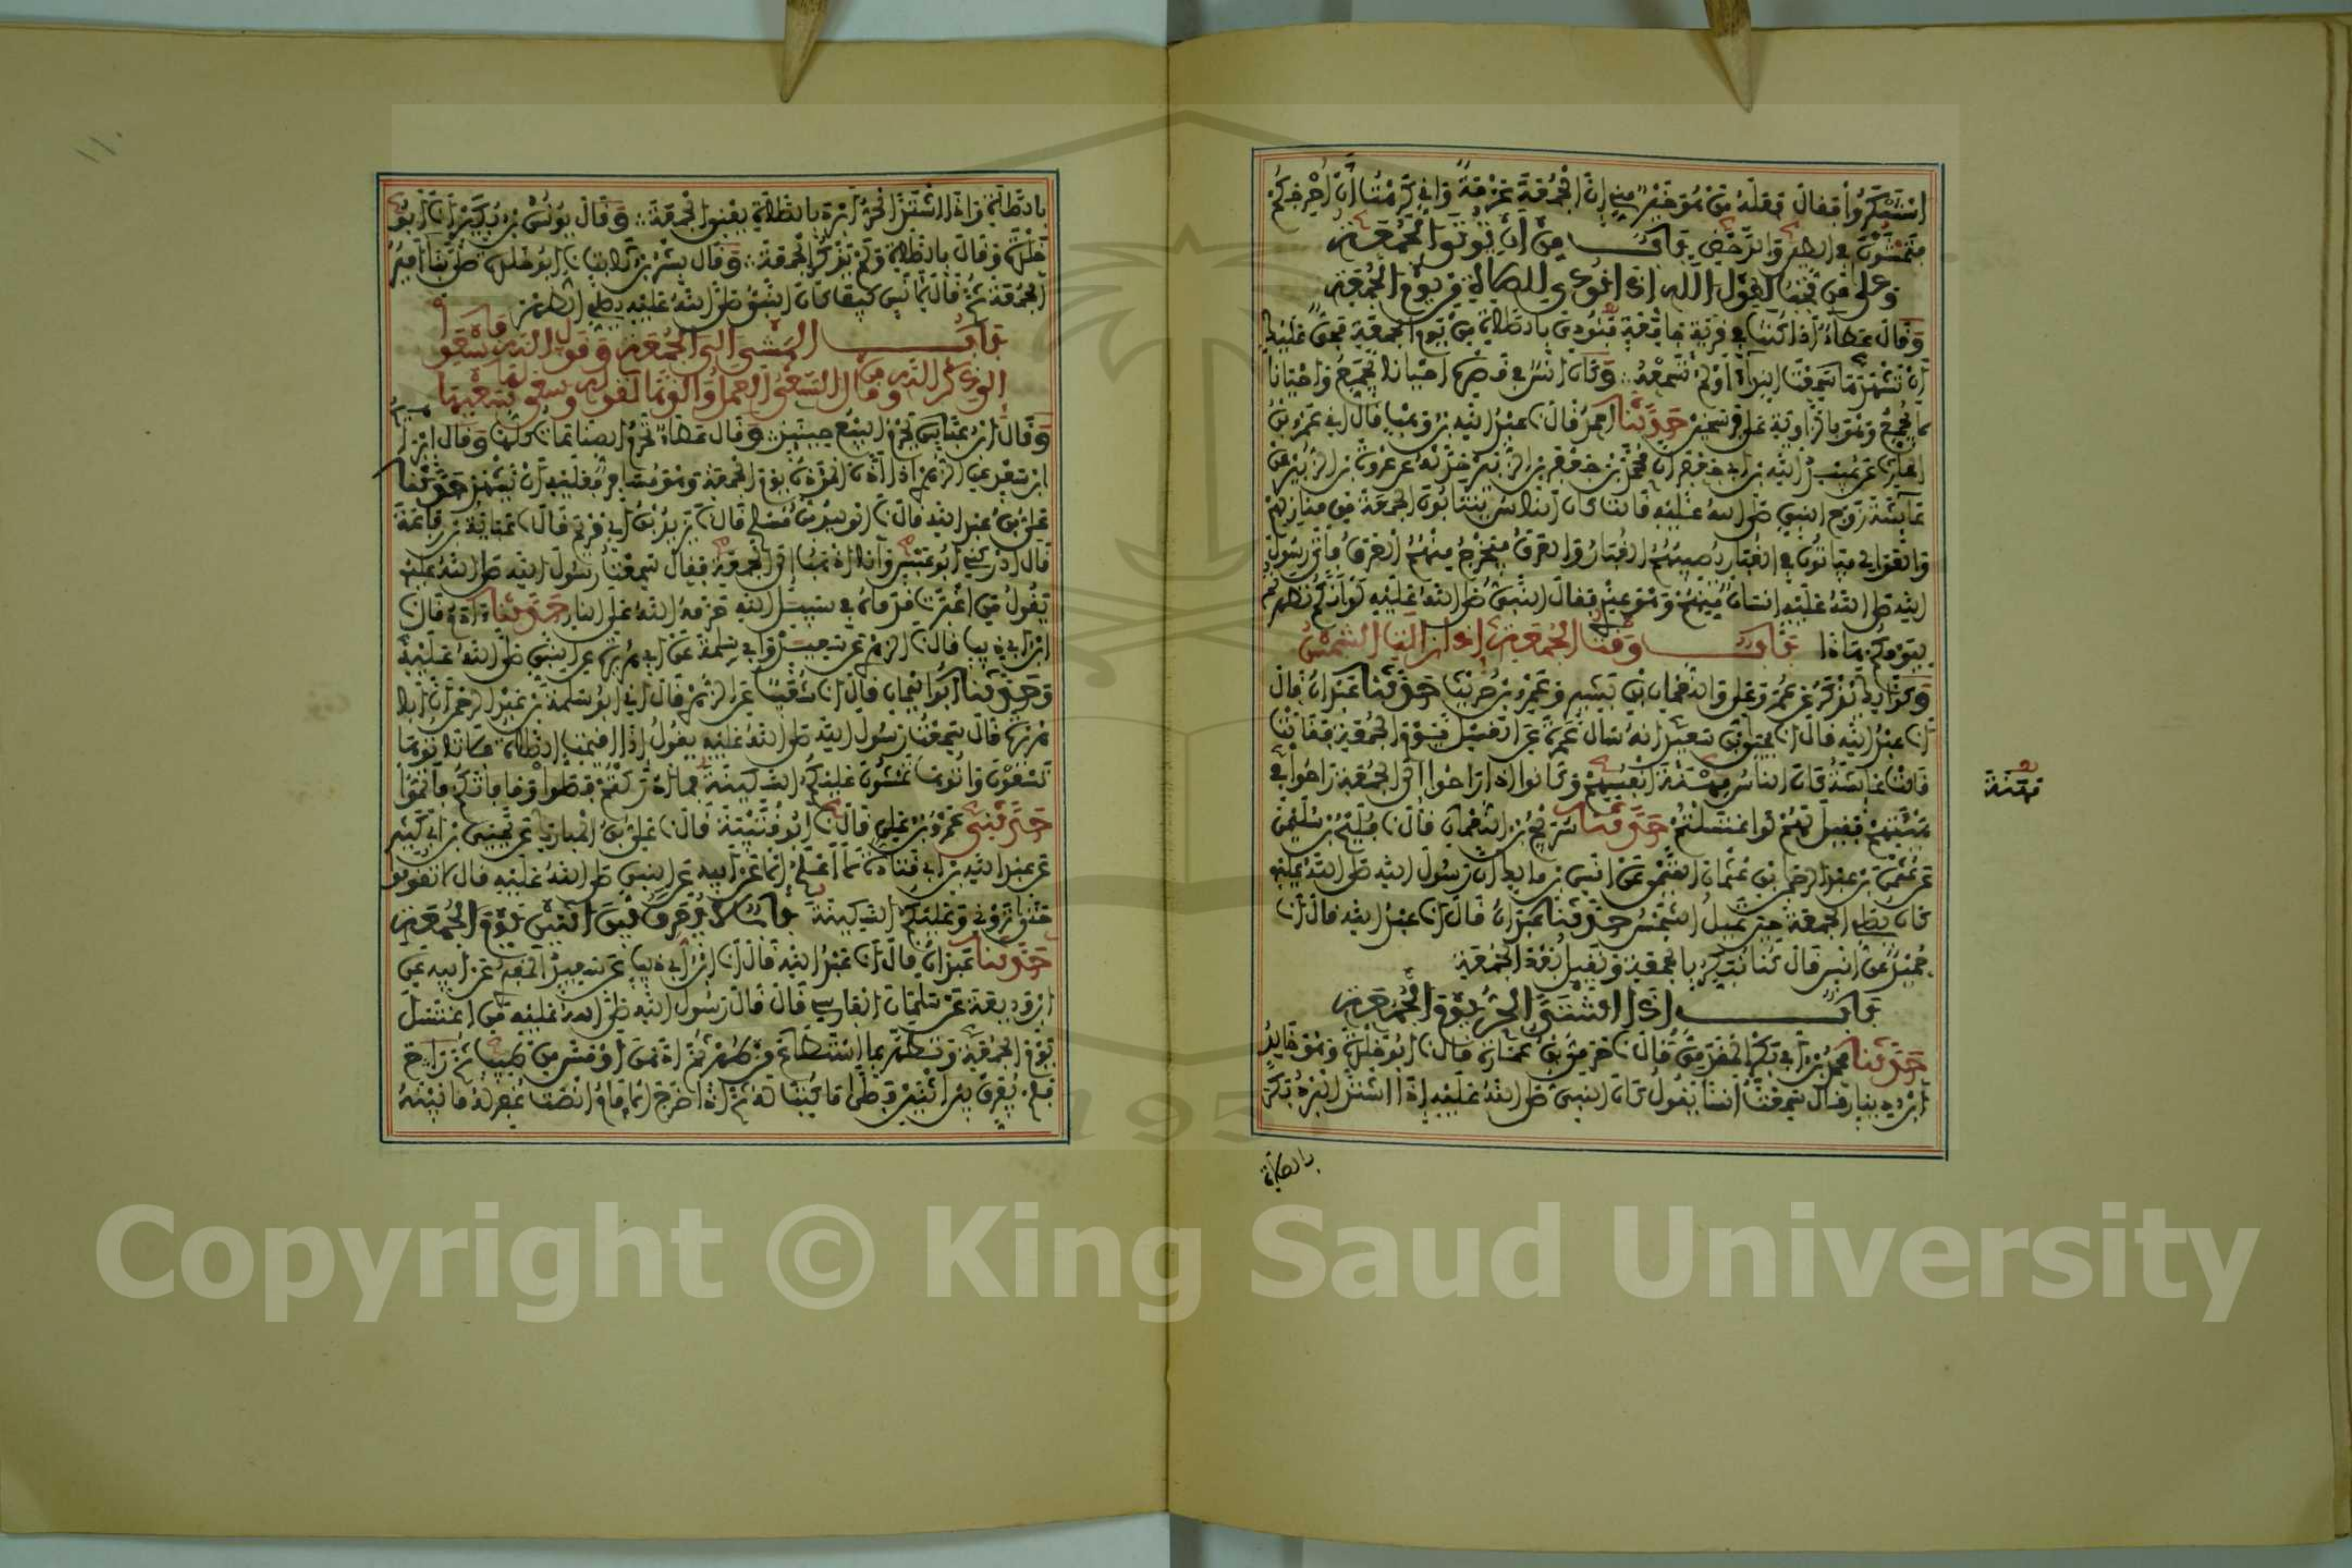 استنكروا فقال فعله من هو خير مني ان الجمعة عزمة واني كرهت ان احرجكم
فتمشون في الطين والدحض باب من اين توتى الجمعة
وعلى من تجب لقول الله اذا نودي للصلاة من يوم الجمعة
وقال عطاء اذا كنت في قرية جامعة فنودي بالصلاة من يوم الجمعة فحق عليك
ان تشهدها سمعت النداء او لم تسمعه وكان انس في قصره احيانا يجمع واحيانا
لا يجمع وهو بالزاوية على فرسخين حدثنا احمد قال نا عبد الله بن وهب قال اني عمرو بن
الحارث عن عبيد الله بن ابي جعفر ان محمد بن جعفر بن الزبير حدثه عن عروة بن الزبير عن
عائشة زوج النبي صلى الله عليه قالت كان الناس ينتابون الجمعة من منازلهم
والعوالي فياتون في الغبار يصيبهم الغبار والعرق فيخرج منهم العرق فاتى رسول
الله صلى الله عليه انسان منهم وهو عندي فقال النبي صلى الله عليه لو انكم تطهرتم
ليومكم هاذا باب وقت الجمعة اذا زالت الشمس
وكذلك يذكر عن عمر وعلي والنعمان بن بشير وعمرو بن حريث حدثنا عبدان قال
انا عبد الله قال انا يحيى بن سعيد انه سال عمرة عن الغسل يوم الجمعة فقالت
قالت عائشة كان الناس مهنة انفسهم وكانوا اذا راحوا الى الجمعة راحوا في
هيئتهم فقيل لهم لو اغتسلتم حدثنا سريج بن النعمان قال نا فليح بن سليمن
عن عثمن بن عبد الرحمن بن عثمان التيمي عن انس بن مالك ان رسول الله صلى الله عليه
كان يصلي الجمعة حين تميل الشمس حدثنا عبدان قال انا عبد الله قال انا
حميد عن انس قال كنا نبكر بالجمعة ونقيل بعد الجمعة
باب اذا اشتد الحر يوم الجمعة
حدثنا محمد بن ابي بكر المقدمي قال نا حرمي بن عمارة قال نا ابو خلدة وهو خالد
ابن دينار قال سمعت انسا يقول كان النبي صلى الله عليه اذا اشتد البرد بكر
بالصلاة
مهنة
بالصلاة واذا اشتد الحر ابرد بالصلاة يعني الجمعة وقال يونس بن بكير انا ابو
خلدة وقال بالصلاة ولم يذكر الجمعة وقال بشر بن ثابت نا ابو خلدة صلى بنا امير
الجمعة ثم قال لانس كيف كان النبي صلى الله عليه يصلي الظهر
باب المشي الى الجمعة وقول الله فاسعوا
الى ذكر الله ومن قال السعي العمل والذهاب لقوله وسعى لها سعيها
وقال ابن عباس يحرم البيع حينئذ وقال عطاء تحرم الصناعات كلها وقال ابراهيم
ابن سعد عن الزهري اذا اذن الموذن يوم الجمعة وهو مسافر فعليه ان يشهد حدثنا
علي بن عبد الله قال نا الوليد بن مسلم قال نا يزيد بن ابي مريم قال نا عباية بن رفاعة
قال ادركني ابو عبس وانا اذهب الى الجمعة فقال سمعت رسول الله صلى الله عليه
يقول من اغبرت قدماه في سبيل الله حرمه الله على النار حدثنا ادم قال
ابن ابي ذيب قال نا الزهري عن سعيد وابي سلمة عن ابي هريرة عن النبي صلى الله عليه
وحدثنا ابو اليمان قال انا شعيب عن الزهري قال اني ابو سلمة بن عبد الرحمن ان ابا
هريرة قال سمعت رسول الله صلى الله عليه يقول اذا اقيمت الصلاة فلا تاتوها
تسعون واتوها تمشون عليكم السكينة فما ادركتم فصلوا وما فاتكم فاتموا
حدثني عمرو بن علي قال نا ابو قتيبة قال نا علي بن المبارك عن يحيى بن ابي كثير
عن عبد الله بن ابي قتادة لا اعلمه الا عن ابيه عن النبي صلى الله عليه قال لا تقوموا
حتى تروني وعليكم السكينة باب لا يفرق بين اثنين يوم الجمعة
حدثنا عبدان قال انا عبد الله قال انا ابن ابي ذيب عن سعيد المقبري عن ابيه عن
ابن وديعة عن سلمان الفارسي قال قال رسول الله صلى الله عليه من اغتسل
يوم الجمعة وتطهر بما استطاع من طهر ثم ادهن او مس من طيب ثم راح
فلم يفرق بين اثنين فصلى ما كتب له ثم اذا خرج الامام انصت غفر له ما بينه
Copyright © King Saud University
195